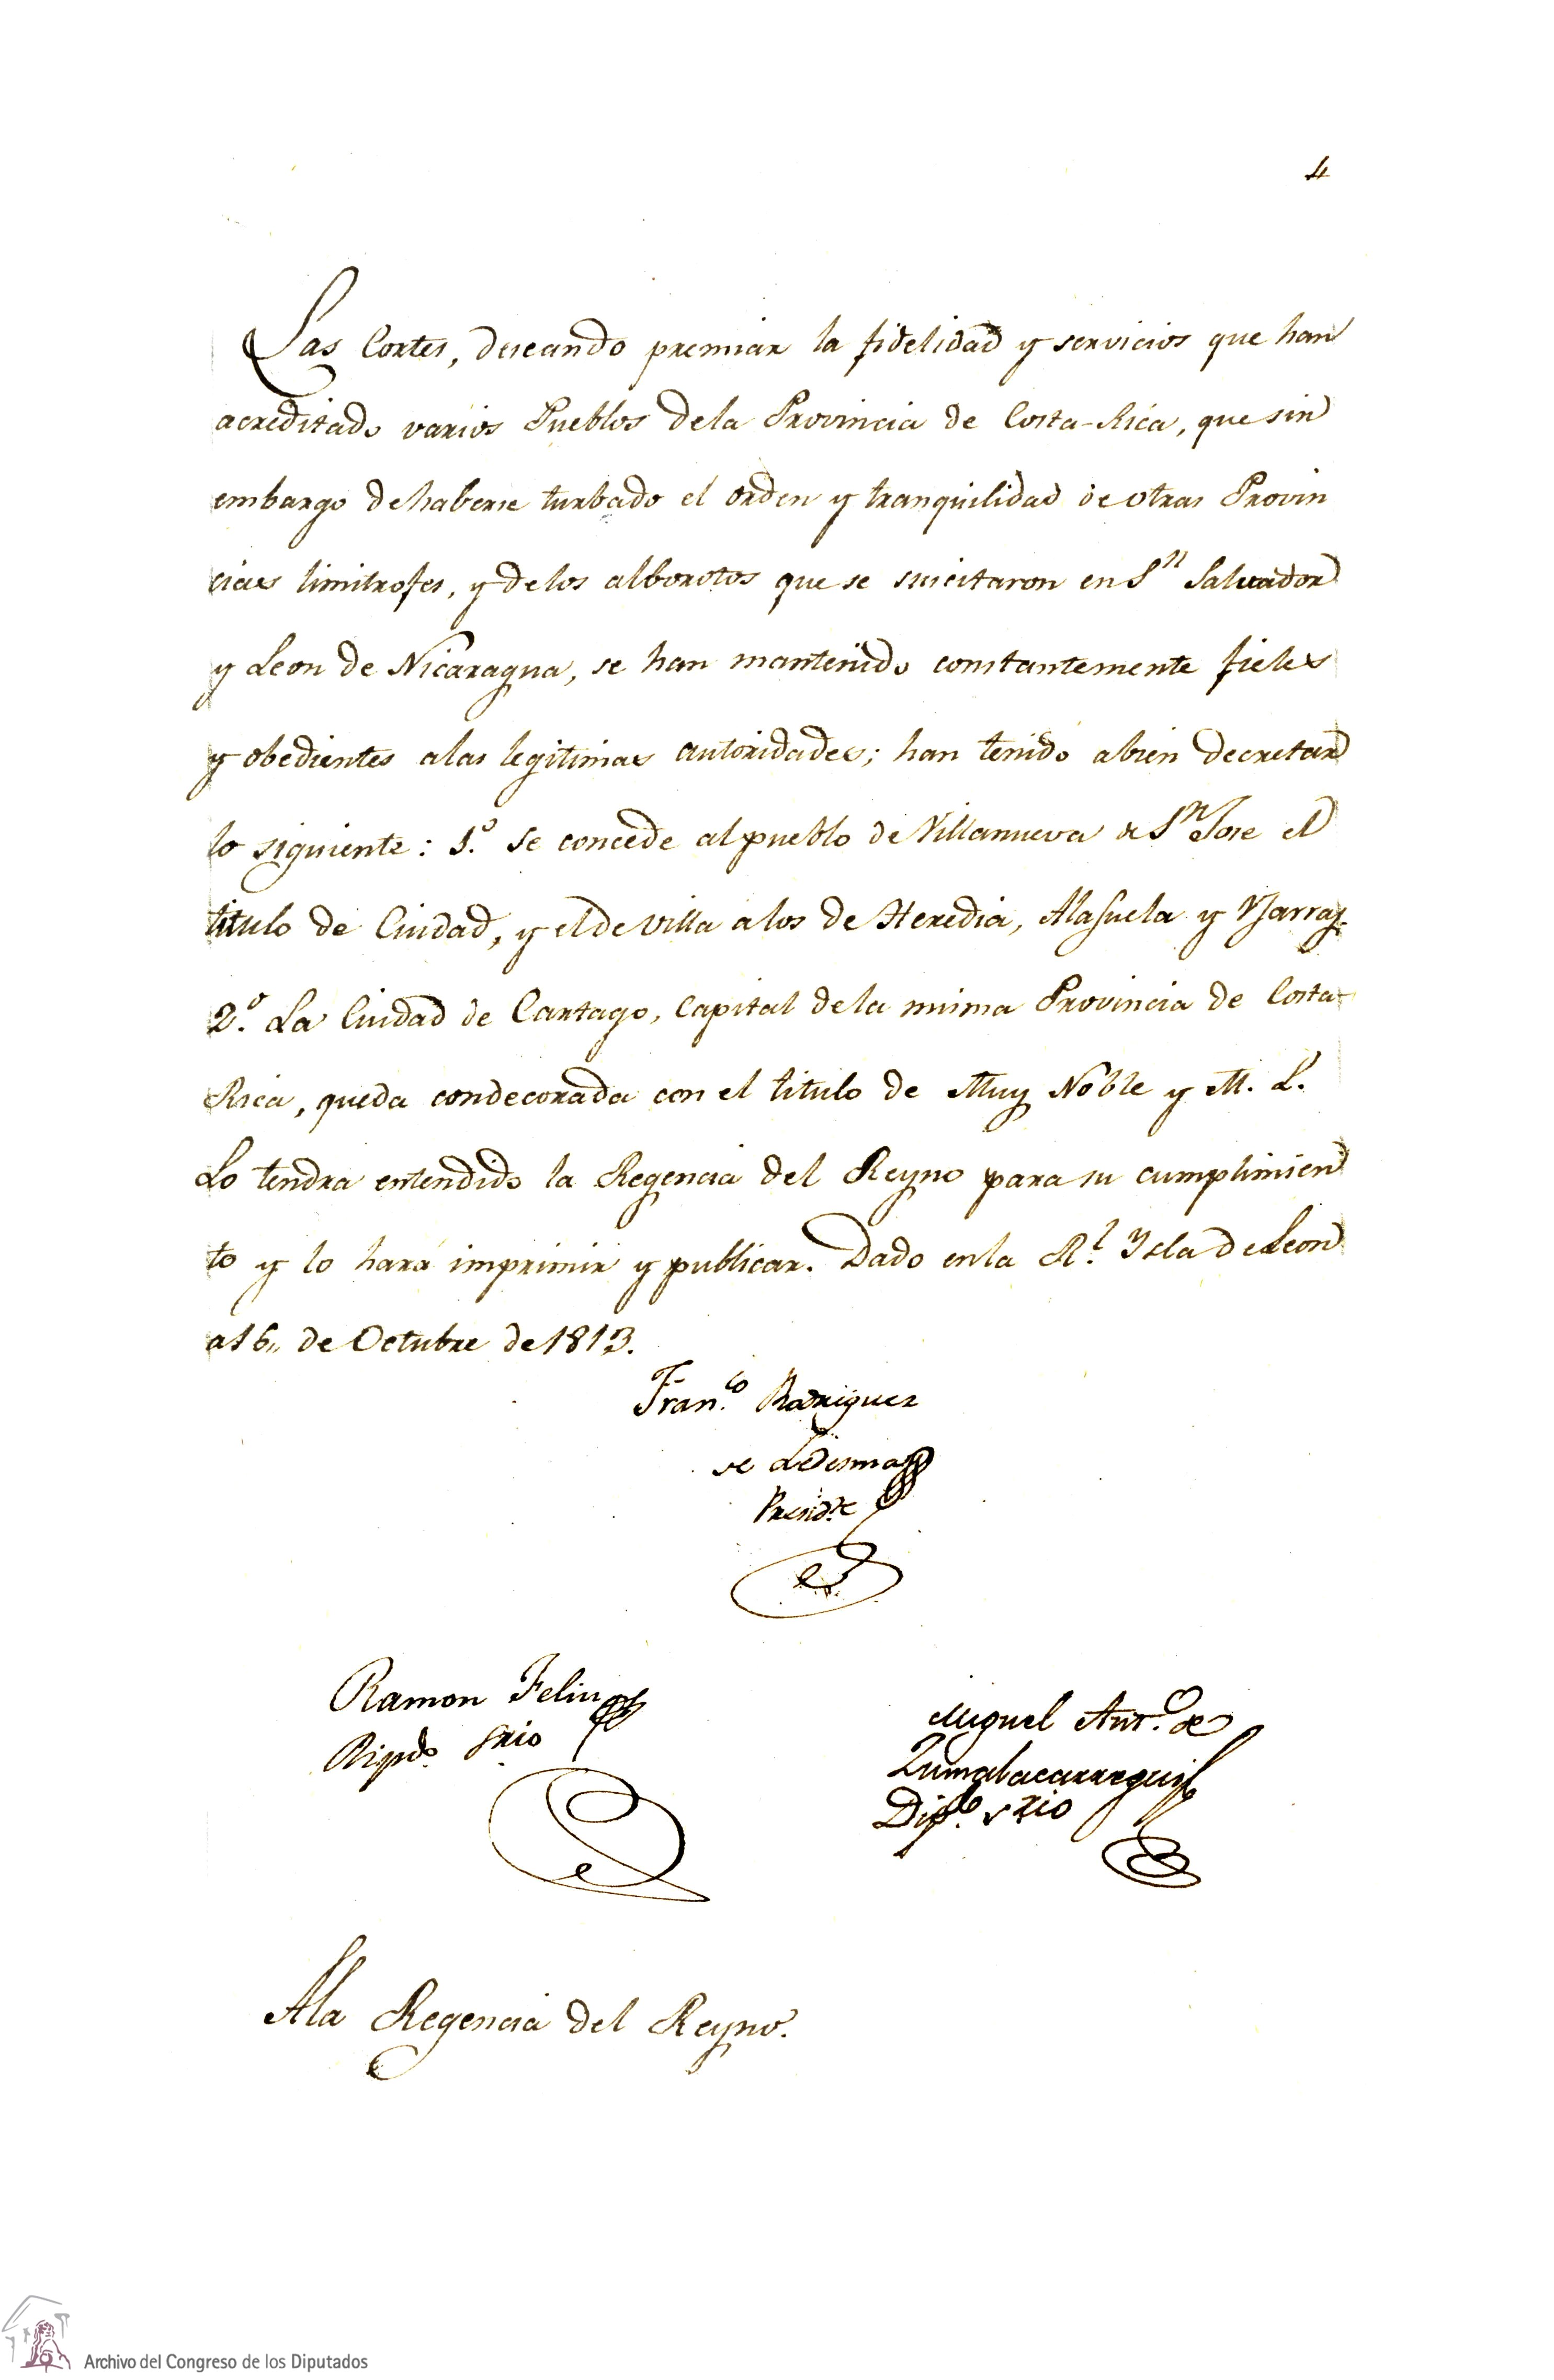 4
Las Cortes, deseando premiar la fidelidad y servicios que han
acreditado varios Pueblos dela Provincia de Costa-Rica, que sin
embargo dehaberse turbado el orden y tranquilidad de otras Provin
cias limitrofes, y delos alborotos que se suscitaron en Sn Salvador
y Leon de Nicaragua, se han mantenido constantemente fieles
y obedientes alas legitimas autoridades; han tenido abien decretar
lo siguiente: 1.º Se concede al pueblo de Villanueva de Sn Jose el
titulo de Ciudad, y el de Villa alos de Heredia, Alajuela y Ujarraz.
2.º La Ciudad de Cartago, Capital dela misma Provincia de Costa-
Rica, queda condecorada con el titulo de Muy Noble y M. L.
Lo tendra entendido la Regencia del Reyno para su cumplimien
to y lo hará imprimir y publicar. Dado enla Rl. Ysla de Leon
a16,, de Octubre de 1813.
Fran.co Rodriguez
de Ledesma
Presid.te
Ramon Feliu
Dipdo. Srio
Miguel Ant.º de
Zumalacarregui
Dip.do Srio
Ala Regencia del Reyno.
Archivo del Congreso de los Diputados